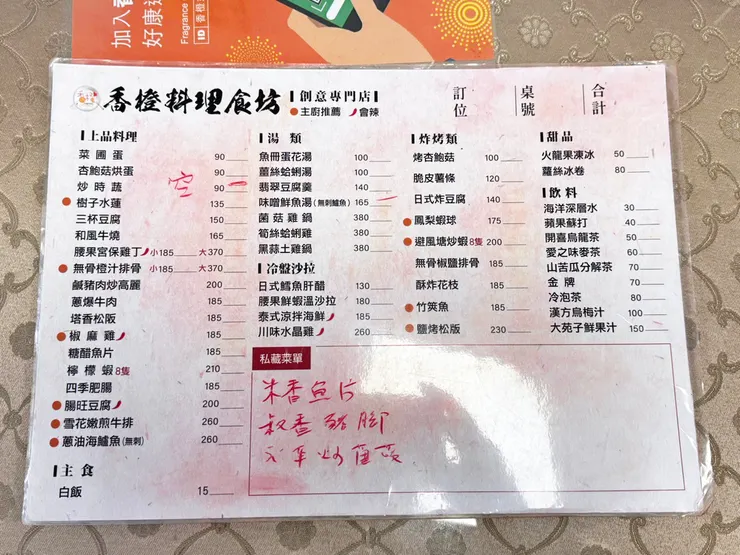 加入
好康
Fragrance
ID 香橙
香橙料理食坊
創意專門店
主廚推薦 會辣
訂位
桌號
合計
上品料理
菜圃蛋 90
杏鮑菇烘蛋 90
炒時蔬 90
空
樹子水蓮 135
三杯豆腐 150
和風牛燒 165
腰果宮保雞丁 小185 大370
無骨橙汁排骨 小185 大370
鹹豬肉炒高麗 200
蔥爆牛肉 185
塔香松阪 185
椒麻雞 185
糖醋魚片 185
檸檬蝦8隻 200
四季肥腸 185
腸旺豆腐 200
雪花嫩煎牛排 260
蔥油海鱸魚(無刺) 260
主食
白飯 15
湯類
魚冊蛋花湯 100
薑絲蛤蜊湯 100
翡翠豆腐羹 140
味噌鮮魚湯(無刺鱸魚) 165
菌菇雞鍋 380
筍絲蛤蜊雞 380
黑蒜土雞鍋 380
冷盤沙拉
日式鱈魚肝醋 130
腰果鮮蝦溫沙拉 180
泰式涼拌海鮮 185
川味水晶雞 260
炸烤類
烤杏鮑菇 100
脆皮薯條 120
日式炸豆腐 140
鳳梨蝦球 175
避風塘炒蝦8隻 200
無骨椒鹽排骨 185
酥炸花枝 185
竹筴魚 185
鹽烤松版 230
甜品
火龍果凍冰 50
蘿絲冰卷 80
飲料
海洋深層水 30
蘋果蘇打 40
開喜烏龍茶 60
愛之味麥茶 60
山苦瓜分解茶 60
金牌 70
冷泡茶 80
漢方烏梅汁 100
大苑子鮮果汁 150
私藏菜單
魚片
豬腳
炒